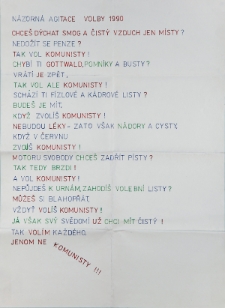 NÁZORNÁ AGITACE VOLBY 1990
CHCEŠ DÝCHAT SMOG A ČISTÝ VZDUCH JEN MÍSTY?
NEDOŽÍT SE PENZE?
TAK VOL KOMUNISTY!
CHYBÍ TI GOTTWALD, POMNÍKY A BUSTY?
VRÁTÍ JE ZPĚT,
TAK VOL ALE KOMUNISTY!
SCHÁZÍ TI FÍZLOVÉ A KÁDROVÉ LISTY?
BUDEŠ JE MÍT,
KDYŽ ZVOLÍŠ KOMUNISTY!
NEBUDOU LÉKY - ZATO VŠAK NÁDORY A CYSTY,
KDYŽ V ČERVNU
ZVOLÍŠ KOMUNISTY!
MOTORU SVOBODY CHCEŠ ZADŘÍT PÍSTY?
TAK TEDY BRZDI!
A VOL KOMUNISTY!
NEPŮJDEŠ K URNÁM, ZAHODÍŠ VOLEBNÍ LISTY?
MŮŽEŠ SI BLAHOPŘÁT,
VŽDYŤ VOLÍŠ KOMUNISTY!
JÁ VŠAK SVÝ SVĚDOMÍ UŽ CHCI MÍT ČISTÝ!
TAK VOLÍM KAŽDÉHO,
JENOM NE KOMUNISTY!!!